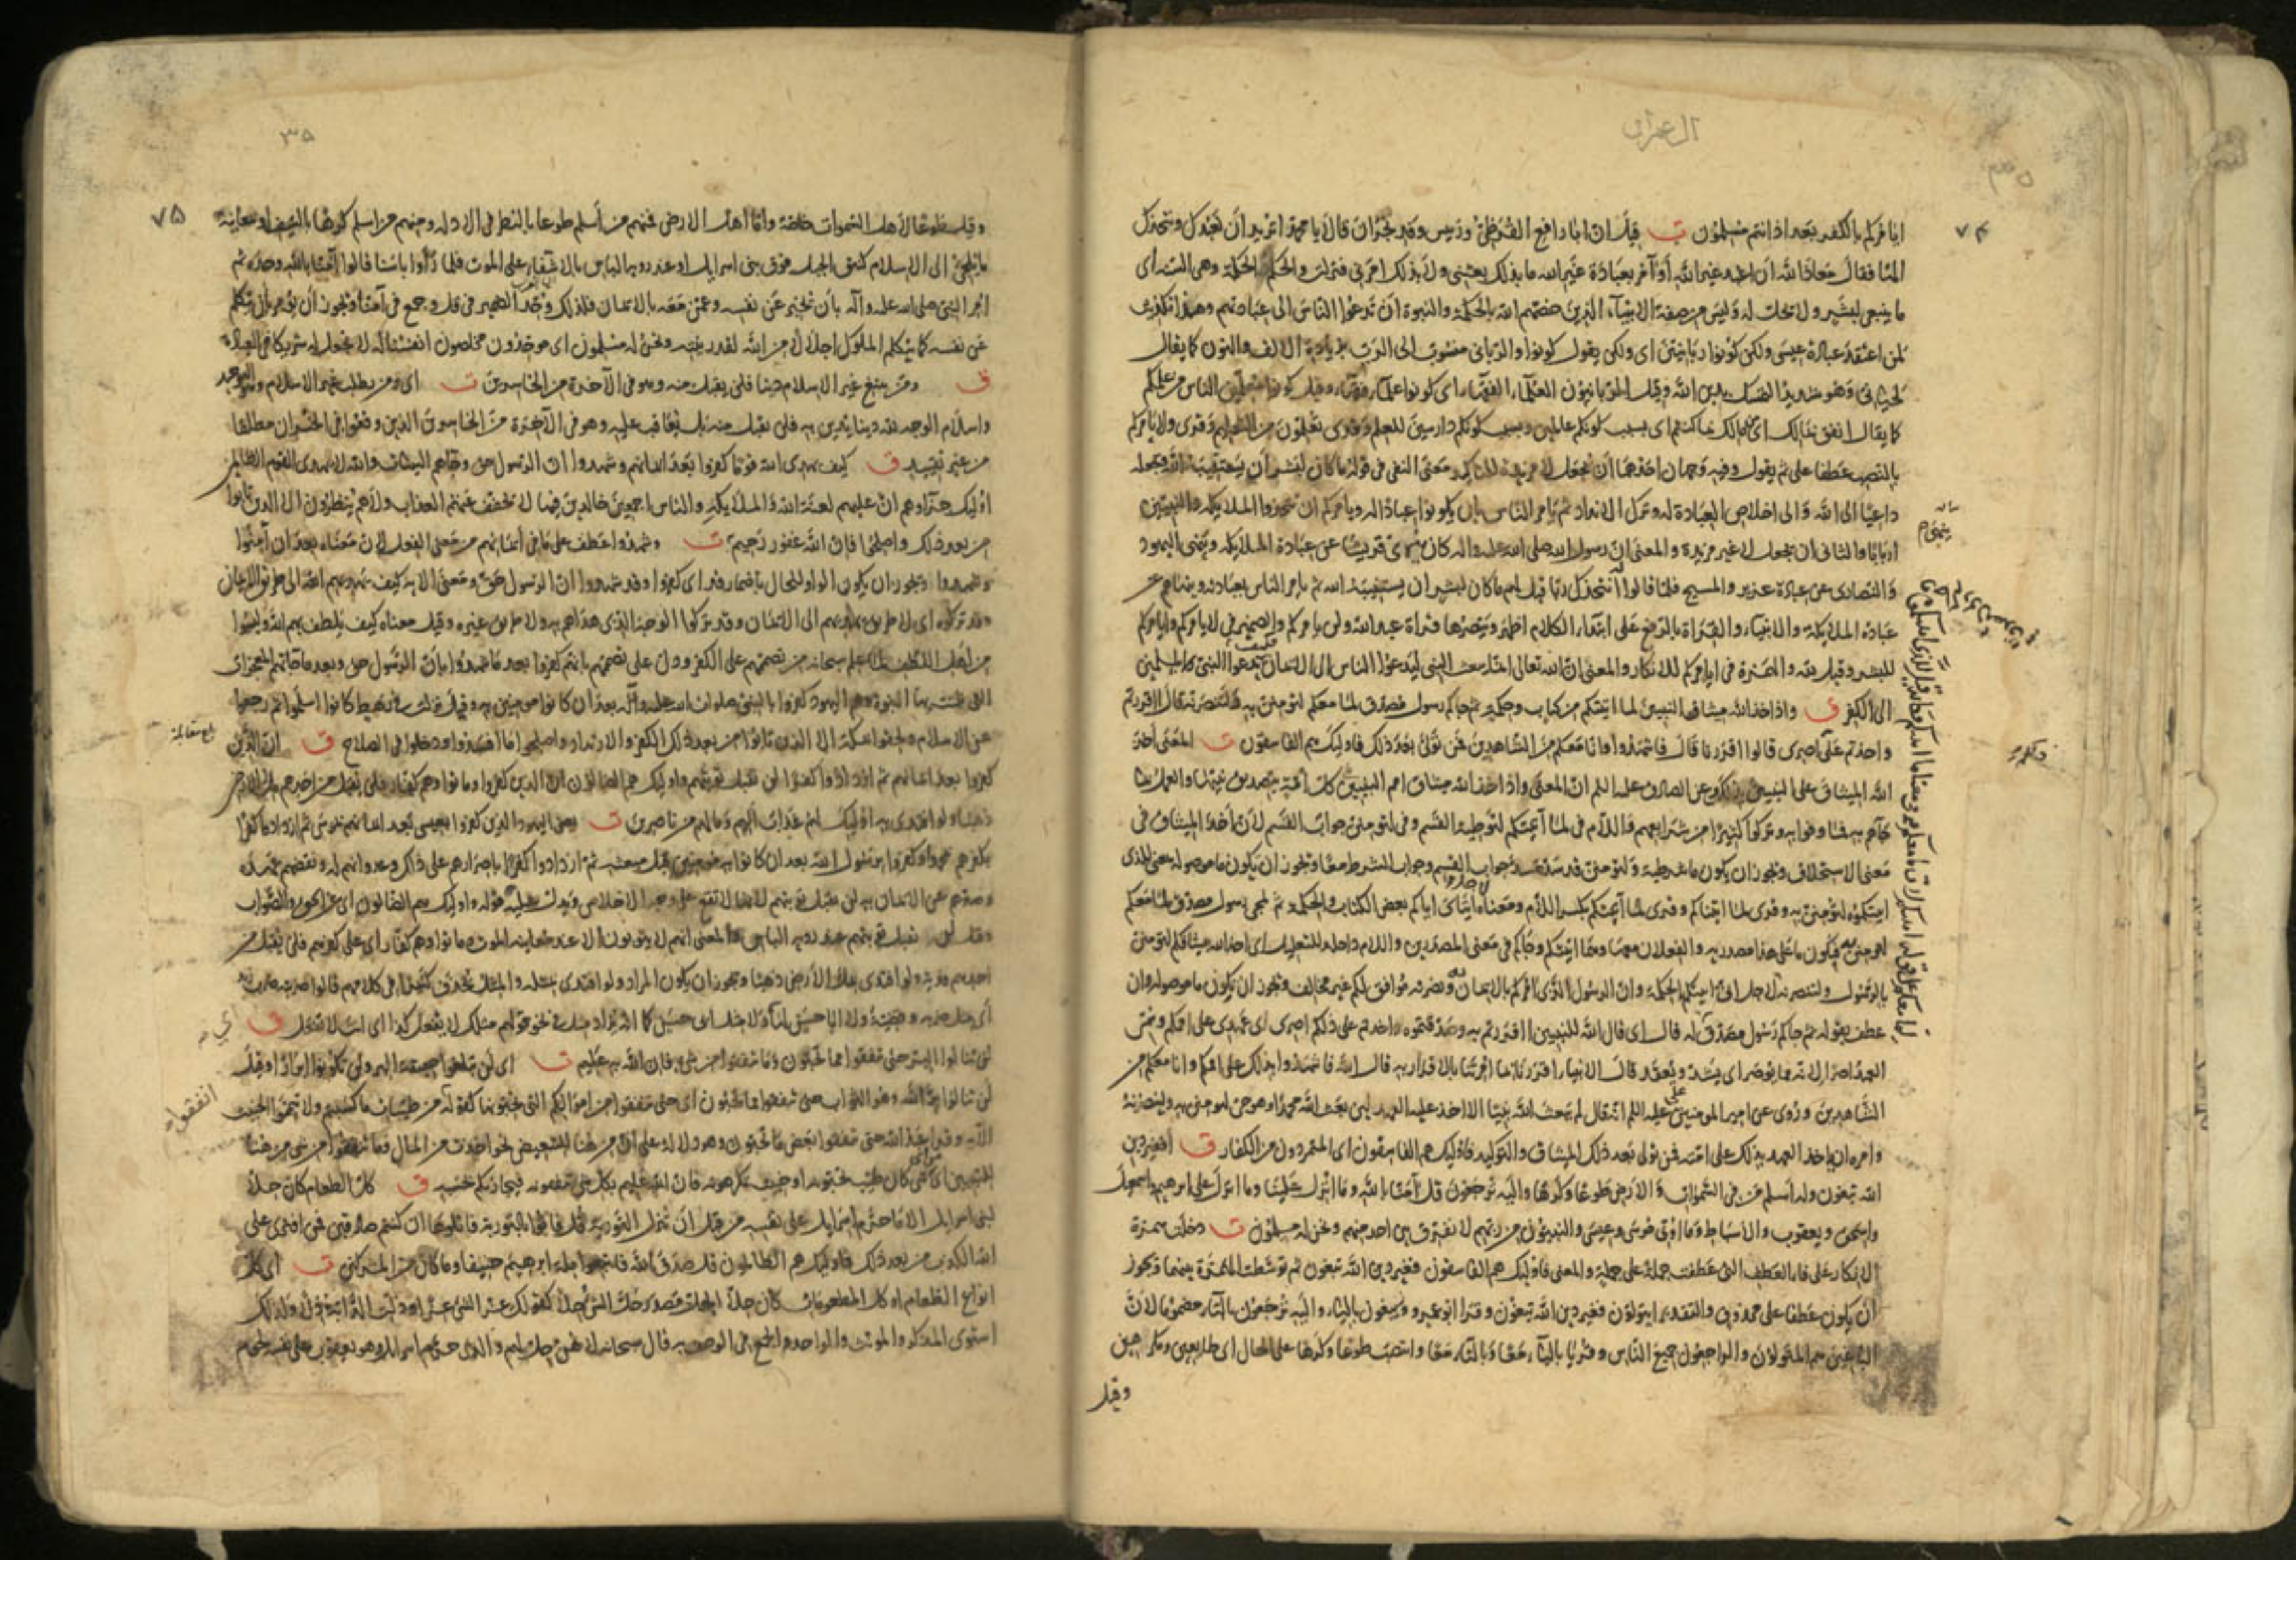 ال عمران
٧٤
ايامركم بالكفر بعد اذ انتم مسلمون ت قيل ان ابا رافع القرظى ورئيس وفد نجران قالا يا محمد اتريد ان نعبدك ونتخذك
الها فقال معاذ الله ان اعبد غير الله او آمر بعبادة غير الله ما بذلك بعثنى ولا بذلك امرنى فنزلت والحكم الحكمة وهى السنة اى
ما ينبغى لبشر ولا يحل له وليس من صفة الانبياء الذين خصهم الله بالحكمة والنبوة ان تدعوا الناس الى عبادتهم وهذا تكذيب
لمن اعتقد عبادة عيسى ولكن كونوا ربانيين اى ولكن يقول كونوا والربانى منسوب الى الرب بزيادة الالف والنون كما يقال
لحيانى وهو شديد التمسك بدين الله وقيل الربانيون العلماء الفقهاء اى كونوا علماء فقهاء وقيل كونوا معلمين الناس من علمكم
كما يقال انفق بمالك اى من مالك بما كنتم اى بسبب كونكم عالمين وبسبب كونكم دارسين للعلم وقرى تعلمون من التعليم وقرى ولا يامركم
بالنصب عطفا على ثم يقول وفيه وجهان احدهما ان تجعل لا مزيدة لتاكيد معنى النفى فى قوله ما كان لبشر ان يستنبئه الله ويجعله
داعيا الى الله والى اخلاص العبادة له وترك الانداد ثم يامر الناس بان يكونوا عبادا له ويامركم ان تتخذوا الملايكة والنبيين
اربابا والثانى ان يجعل لا غير مزيدة والمعنى ان رسول الله صلى الله عليه واله كان ينهى قريشا عن عبادة الملايكة وينهى اليهود
والنصارى عن عبادة عزير والمسيح فلما قالوا انتخذك ربا قيل لهم ما كان لبشر ان يستنبئه الله ثم يامر الناس بعبادته وينهاهم عن
عبادة الملايكة والانبياء والقراة بالرفع على ابتداء الكلام اظهر وينصرها قراة عبد الله ولن يامركم والضمير فى لا يامركم وايامركم
للبشر وقيل لله والهمزة فى ايامركم للانكار والمعنى ان الله تعالى انما يبعث النبى ليدعوا الناس الى الايمان فكيف يدعوا النبى المسلمين
الى الكفر ق واذ اخذ الله ميثاق النبيين لما آتيتكم من كتاب وحكمة ثم جاكم رسول مصدق لما معكم لتؤمنن به ولتنصرنه قال ااقررتم
واخذتم على اصرى قالوا اقررنا قال فاشهدوا وانا معكم من الشاهدين فمن تولى بعد ذلك فاوليك هم الفاسقون ت المعنى اخذ
الله الميثاق على النبيين بذلك وعن الصادق عليه السلم ان المعنى واذ اخذ الله ميثاق امم النبيين كل امة بتصديق نبيها والعمل بما
جاهم به فما وفوا به وتركوا كثيرا من شرايعهم فاللام فى لما آتيتكم لتوطية القسم وفى لتؤمنن جواب القسم لان اخذ الميثاق فى
معنى الاستحلاف ويجوز ان يكون ما شرطية ولتؤمنن قد سد مسد جواب القسم وجواب الشرط معا ويجوز ان يكون ما موصولة بمعنى الذى
آتيتكموه لتؤمنن به وقرى لما آتيناكم وقرى لما آتيتكم بكسر اللام ومعناه لاجل ايتاى اياكم بعض الكتاب والحكمة ثم لمجى رسول مصدق لما معكم
لتؤمنن به فيكون ما على هذا مصدرية والفعلان معها وهما آتيتكم وجاكم فى معنى المصدرين واللام داخلة للتعليل اى اخذ الله ميثاقكم لتؤمنن
بالرسول ولتنصرنه لاجل انى آتيتكم الحكمة وان الرسول الذى امركم بالايمان به ونصرته موافق لكم غير مخالف ويجوز ان يكون ما موصولة وان
عطف بقوله ثم جاكم رسول مصدق له قال اى قال الله للنبيين ااقررتم به وصدقتموه واخذتم على ذلكم اصرى اى عهدى على اممكم وسمى
العهد اصرا لانه مما يوصر اى يشد ويعقد قال الانبياء اقررنا بما امرتنا بالاقرار به قال الله فاشهدوا بذلك على اممكم وانا معكم من
الشاهدين وروى عن امير المومنين على عليه السلم انه قال لم يبعث الله نبيا الا اخذ عليه العهد لين بعث الله محمدا وهو حى ليومنن به ولينصرنه
وامره ان ياخذ العهد بذلك على امته فمن تولى بعد ذلك الميثاق والتوكيد فاوليك هم الفاسقون اى المتمردون من الكفار ق افغير دين
الله تبغون وله اسلم من فى السموات والارض طوعا وكرها واليه ترجعون قل آمنا بالله وما انزل علينا وما انزل على ابرهيم واسمعيل
واسحق ويعقوب والاسباط وما اوتى موسى وعيسى والنبيون من ربهم لا نفرق بين احد منهم ونحن له مسلمون ت دخلت همزة
الانكار على فاء العطف التى عطفت جملة على جملة والمعنى فاوليك هم الفاسقون فغير دين الله تبغون ثم توسطت الهمزة بينهما ويجوز
ان يكون عطفا على محذوف والتقدير ايتولون فغير دين الله تبغون وقرا ابو عمرو يبغون بالياء واليه ترجعون بالتاء مضمومة لان
الباغين هم المتولون والراجعون جميع الناس وقريا بالياء معا وبالتاء معا وانتصب طوعا وكرها على الحال اى طايعين ومكرهين
وقيل
٣٥
٧٥
وقيل طوعا لاهل السموات خاصة واما اهل الارض فمنهم من اسلم طوعا بالنظر فى الادلة ومنهم من اسلم كرها بالسيف او بمعاينة
ما يلجئ الى الاسلام كنتق الجبل فوق بنى اسرايل او عند روية الباس بالاشفاء على الموت فلما راوا باسنا قالوا آمنا بالله وحده ثم
امر النبى صلى الله عليه وآله بان يخبر عن نفسه وعمن معه بالايمان فلذلك وحد الضمير فى قل وجمع فى آمنا ويجوز ان يؤمر بان يتكلم
عن نفسه كما يتكلم الملوك اجلالا من الله لقدر نبيه ونحن له مسلمون اى موحدون مخلصون انفسنا له لا نجعل له شريكا فى العبادة
ق ومن يبتغ غير الاسلام دينا فلن يقبل منه وهو فى الآخرة من الخاسرين ت اى ومن يطلب غير الاسلام وهو التوحيد
واسلام الوجه لله دينا يدين به فلن يقبل منه بل يعاقب عليه وهو فى الآخرة من الخاسرين الذين وقعوا فى الخسران مطلقا
من غير تقييد ق كيف يهدى الله قوما كفروا بعد ايمانهم وشهدوا ان الرسول حق وجاهم البينات والله لا يهدى القوم الظالمين
اوليك جزاوهم ان عليهم لعنة الله والملايكة والناس اجمعين خالدين فيها لا يخفف عنهم العذاب ولا هم ينظرون الا الذين تابوا
من بعد ذلك واصلحوا فان الله غفور رحيم ت وشهدوا عطف على ما فى ايمانهم من معنى الفعل لان معناه بعد ان آمنوا
وشهدوا ويجوز ان يكون الواو للحال باضمار قد اى كفروا وقد شهدوا ان الرسول حق ومعنى الاية كيف يهديهم الله الى طريق الايمان
وقد تركوه اى لا طريق يهديهم الى الايمان وقد تركوا الوجه الذى هداهم به ولا طريق غيره وقيل معناه كيف يلطف بهم الله وليسوا
من اهل اللطف لما علم سبحانه من تصميمهم على الكفر ودل على تصميمهم بانهم كفروا بعد ما شهدوا بان الرسول حق وبعد ما جاتهم المعجزات
التى تثبت بها النبوة وهم اليهود كفروا بالنبى صلوات الله عليه وآله بعد ان كانوا مومنين به وقيل نزلت فى رهط كانوا اسلموا ثم رجعوا
عن الاسلام ولحقوا بمكة الا الذين تابوا من بعد ذلك الكفر والارتداد واصلحوا ما افسدوا ودخلوا فى الصلاح ق ان الذين
كفروا بعد ايمانهم ثم ازدادوا كفرا لن تقبل توبتهم واوليك هم الضالون ان الذين كفروا وماتوا وهم كفار فلن يقبل من احدهم ملء الارض
ذهبا ولو افتدى به اوليك لهم عذاب اليم وما لهم من ناصرين ت يعنى اليهود الذين كفروا بعيسى بعد ايمانهم بموسى ثم ازدادوا كفرا
بكفرهم بمحمد او كفروا برسول الله بعد ان كانوا به مومنين قبل مبعثه ثم ازدادوا كفرا باصرارهم على ذلك وعداوتهم له ونقضهم عهده
وصدهم عن الايمان به لن تقبل توبتهم لانها لا تقع على وجه الاخلاص ويدل عليه قوله واوليك هم الضالون اى عن الحق والصواب
وقيل لن تقبل توبتهم عند روية الباس والمعنى انهم لا يتوبون الا عند معاينة الموت وماتوا وهم كفار اى على كفرهم فلن يقبل من
احدهم فدية ولو افتدى بملء الارض ذهبا ويجوز ان يكون المراد ولو افتدى بمثله والمثل يحذف كثيرا فى كلامهم قالوا ضربته ضرب زيد
اى مثل ضربه وقضية ولا ابا حسن لها اى ولا مثل ابى حسن كما انه يزاد مثل فى نحو قولهم مثلك لا يفعل كذا اى انت لا تفعل ق
لن تنالوا البر حتى تنفقوا مما تحبون وما تنفقوا من شى فان الله به عليم ت اى لن تبلغوا حقيقة البر ولن تكونوا ابرارا وقيل
لن تنالوا بر الله وهو الثواب حتى تنفقوا مما تحبون اى حتى تنفقوا من اموالكم التى تحبونها كقوله من طيبات ما كسبتم ولا تيمموا الخبيث
الآية وقرا عبد الله حتى تنفقوا بعض ما تحبون وهو دلالة على ان من هنا للتبعيض نحو اخذت من المال وما تنفقوا من شى من هنا
للتبيين اى من اى شى كان طيب تحبونه او خبيث تكرهونه فان الله عليم بكل شى تنفقونه فيجازيكم بحسبه ق كل الطعام كان حلا
لبنى اسرايل الا ما حرم اسرايل على نفسه من قبل ان تنزل التورية قل فاتوا بالتورية فاتلوها ان كنتم صادقين فمن افترى على
الله الكذب من بعد ذلك فاوليك هم الظالمون قل صدق الله فاتبعوا ملة ابرهيم حنيفا وما كان من المشركين ت اى كل
انواع الطعام او كل المطعومات كان حلا والحل مصدر حل الشى حلا كقولك عز الشى عزا وذلت الدابة ذلا ولذلك
استوى المذكر والمونث والواحد والجمع فى الوصف به قال سبحانه لا هن حل لهم والذى حرم اسرايل وهو يعقوب على نفسه لحم